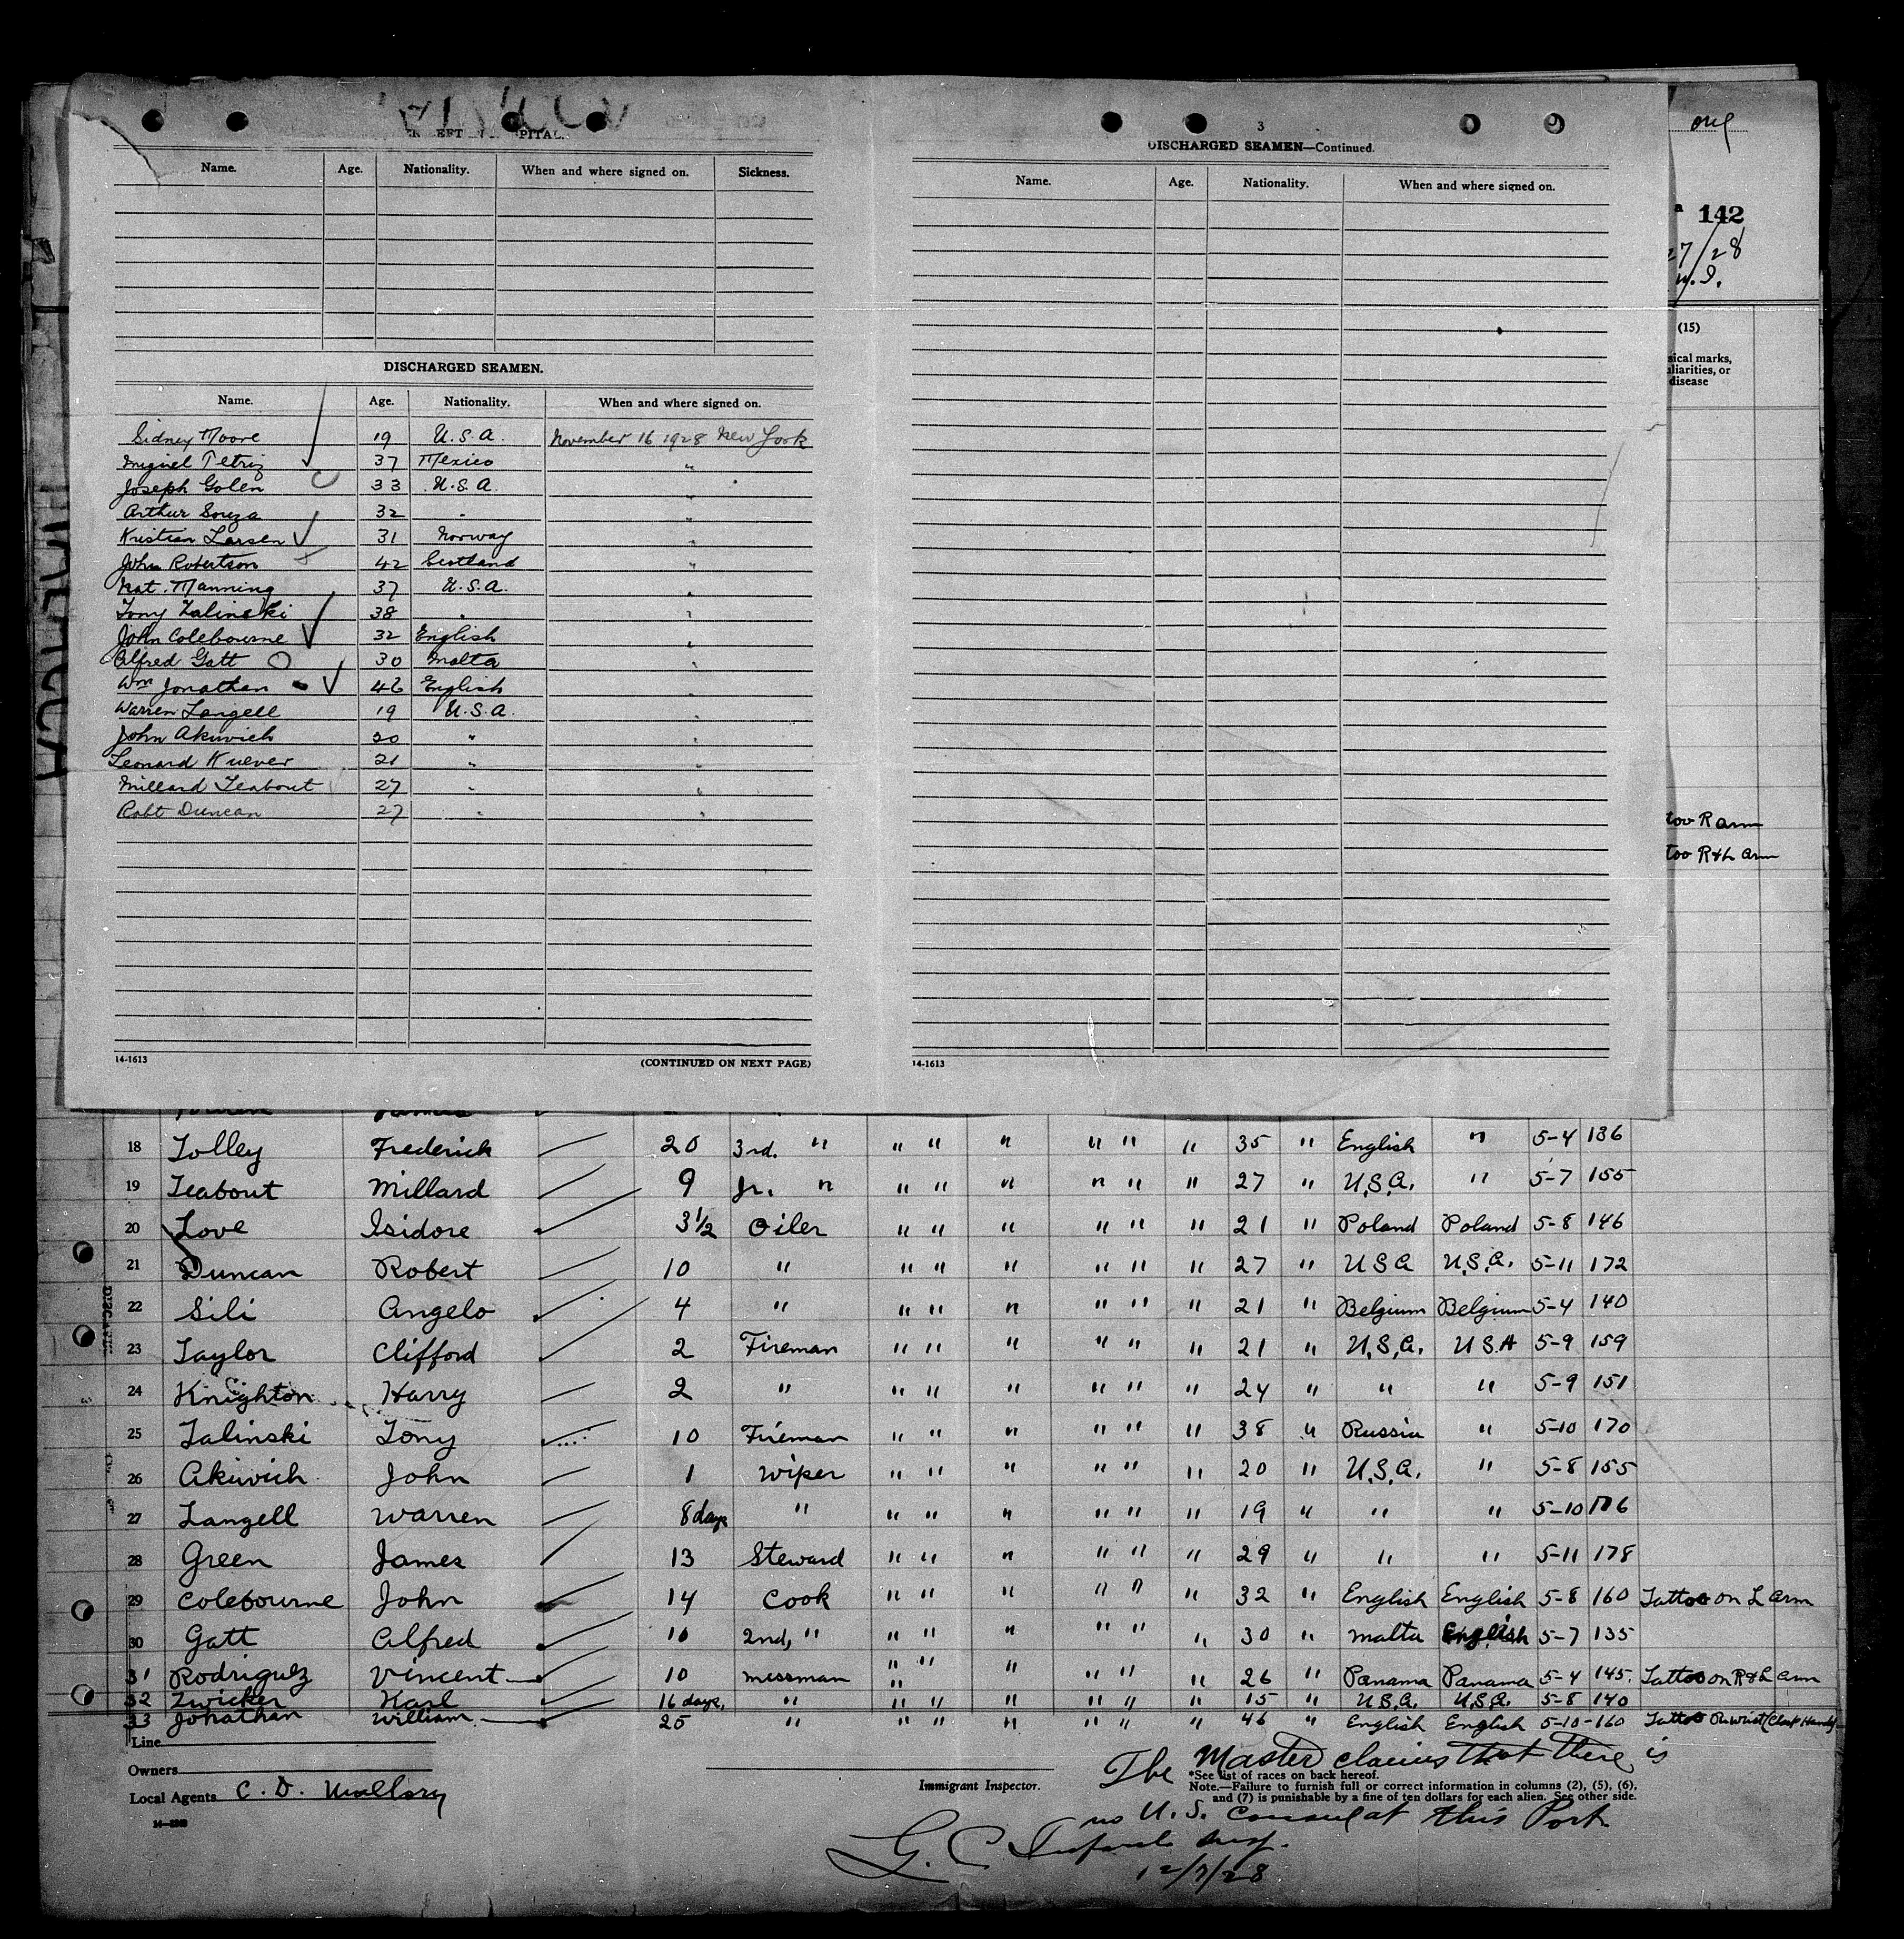 3
DISCHARGED SEAMEN—Continued.
Name. Age. Nationality. When and where signed on. Sickness.
Name. Age. Nationality. When and where signed on.
142
27/28
(15)
sical marks,
uliarities, or
disease
DISCHARGED SEAMEN.
Name. Age. Nationality. When and where signed on.
Sidney Moore 19 U.S.A. November 16 1928 New York
Miguel Petriz 37 Mexico "
Joseph Golen 33 U.S.A. "
Arthur Souza 32 " "
Kristian Larsen 31 Norway "
John Robertson 42 Scotland "
Nat. Manning 37 U.S.A. "
Tony Zalinski 38 " "
John Colebourne 32 English "
Alfred Gatt 30 Malta "
Wm Jonathan 46 English "
Warren Langell 19 U.S.A. "
John Akivich 20 " "
Leonard Kuever 21 " "
Millard Teabout 27 " "
Robt Duncan 27 " "
too R arm
too R&L arm
14-1613 (CONTINUED ON NEXT PAGE)
14-1613
18 Tolley Frederick 20 3rd. " " " " " " " 35 " English " 5-4 136
19 Teabout Millard 9 Jr. " " " " " " " 27 " U.S.A. " 5-7 155
20 Love Isidore 3½ Oiler " " " " " " 21 " Poland Poland 5-8 146
21 Duncan Robert 10 " " " " " " " 27 " USA U.S.A. 5-11 172
22 Sili Angelo 4 " " " " " " " 21 " Belgium Belgium 5-4 140
23 Taylor Clifford 2 Fireman " " " " " " 21 " U.S.A. USA 5-9 159
24 Knighton Harry 2 " " " " " " " 24 " " " 5-9 151
25 Zalinski Tony 10 Fireman " " " " " " 38 " Russia " 5-10 170
26 Akivich John 1 Wiper " " " " " " 20 " U.S.A. " 5-8 155
27 Langell Warren 8 days " " " " " " " 19 " " " 5-10
28 Green James 13 Steward " " " " " " 29 " " " 5-11 178
29 Colebourne John 14 Cook " " " " " " 32 " English English 5-8 160 Tattoo on L arm
30 Gatt Alfred 10 2nd, " " " " " " " 30 " Malta English 5-7 135
31 Rodriguez Vincent 10 Messman " " " " " " 26 " Panama Panama 5-4 145. Tattoo on R&L arm
32 Zwicker Karl 16 days, " " " " " " " 15 " U.S.A. U.S.A. 5-8 140
33 Jonathan William 25 " " " " " " " 46 " English English 5-10-160 Tattoo
Line
Owners
Local Agents C. D. Mallory
Immigrant Inspector.
The Master claims that there is
*See list of races on back hereof.
Note.—Failure to furnish full or correct information in columns (2), (5), (6),
and (7) is punishable by a fine of ten dollars for each alien. See other side.
no U.S. Consul at this Port
G. C. Insp.
12/7/28